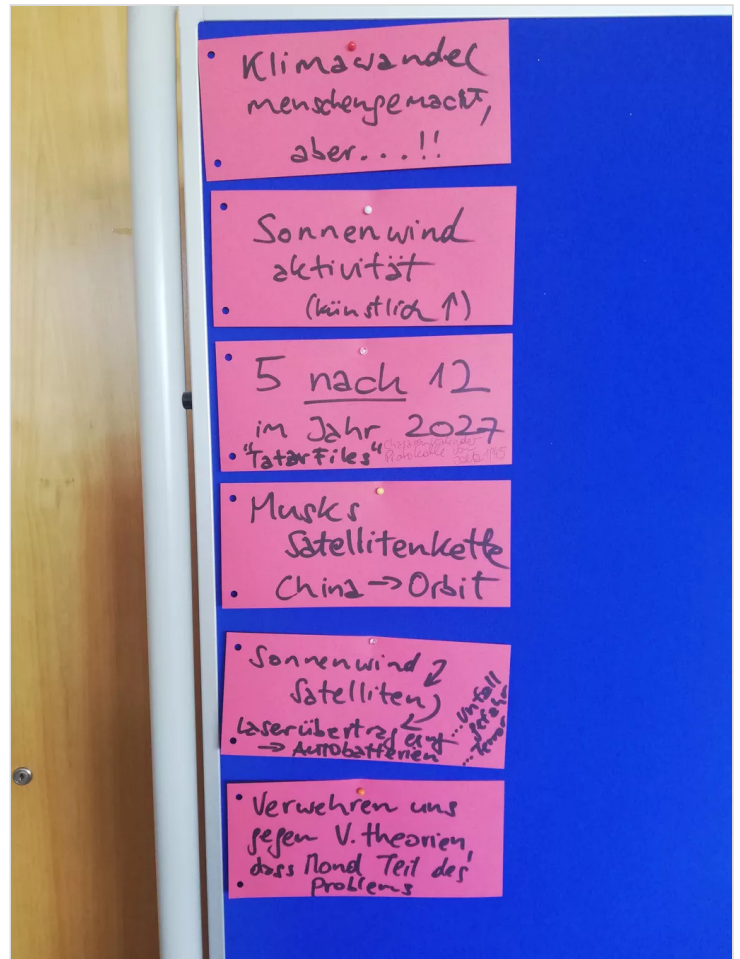 Klimawandel
menschengemacht,
aber...!!
Sonnenwind
aktivität
(künstlich ↑)
5 nach 12
im Jahr 2027
"Tatar Files"
Protokolle von
1945
Musks
Satellitenkette
China → Orbit
Sonnenwind
Satelliten
Laserübertragung
→ Autobatterien
...Unfall
gefahr
...Terror
Verwehren uns
gegen V.theorien,
dass Mond Teil des
Problems